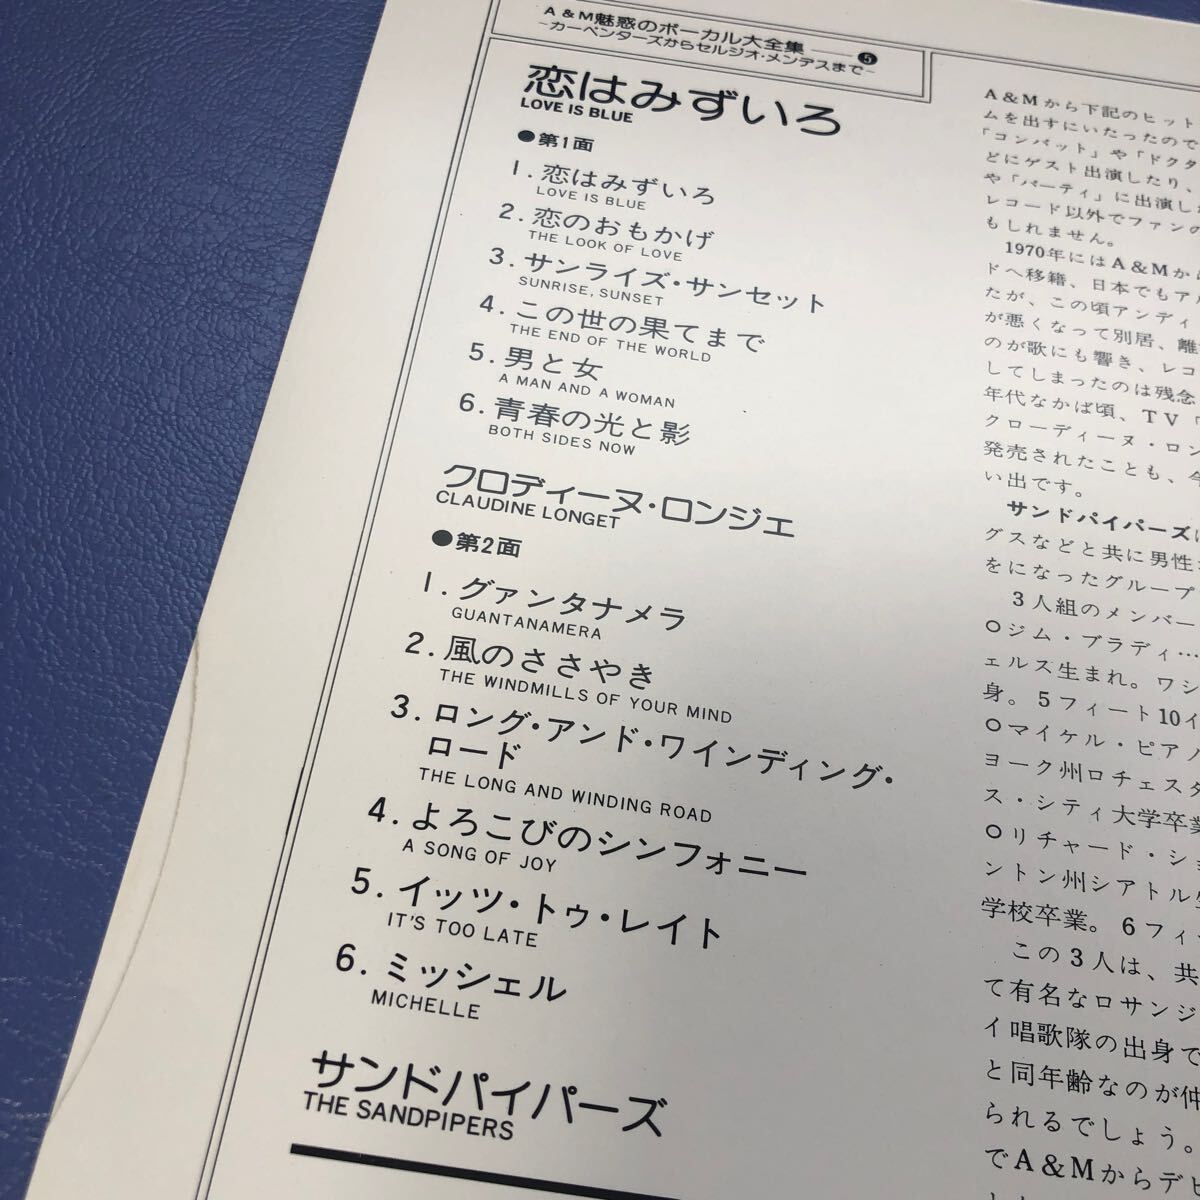 A&M魅惑のボーカル大全集 —— ❺
-カーペンターズからセルジオ・メンデスまで-
恋はみずいろ
LOVE IS BLUE
●第1面
1. 恋はみずいろ
LOVE IS BLUE
2. 恋のおもかげ
THE LOOK OF LOVE
3. サンライズ・サンセット
SUNRISE, SUNSET
4. この世の果てまで
THE END OF THE WORLD
5. 男と女
A MAN AND A WOMAN
6. 青春の光と影
BOTH SIDES NOW
クロディーヌ・ロンジェ
CLAUDINE LONGET
●第2面
1. グァンタナメラ
GUANTANAMERA
2. 風のささやき
THE WINDMILLS OF YOUR MIND
3. ロング・アンド・ワインディング・
ロード
THE LONG AND WINDING ROAD
4. よろこびのシンフォニー
A SONG OF JOY
5. イッツ・トゥ・レイト
IT'S TOO LATE
6. ミッシェル
MICHELLE
サンドパイパーズ
THE SANDPIPERS
A&Mから下記のヒット
ムを出すにいたったので
「コンバット」や「ドクタ
どにゲスト出演したり、
や「パーティ」に出演し
レコード以外でファンの
もしれません。
1970年にはA&Mから
ドへ移籍、日本でもアル
たが、この頃アンディ
が悪くなって別居、離
のが歌にも響き、レコ
してしまったのは残念
年代なかば頃、TV「
クローディーヌ・ロン
発売されたことも、今
い出です。
サンドパイパーズは
グスなどと共に男性
をになったグループ
3人組のメンバー
○ジム・ブラディ…
ェルス生まれ。ワシ
身。5フィート10イ
○マイケル・ピアノ
ヨーク州ロチェスタ
ス・シティ大学卒業
○リチャード・ショ
ントン州シアトル生
学校卒業。6フィー
この3人は、共
て有名なロサンジ
イ唱歌隊の出身で
と同年齢なのが仲
られるでしょう。
でA&Mからデビ